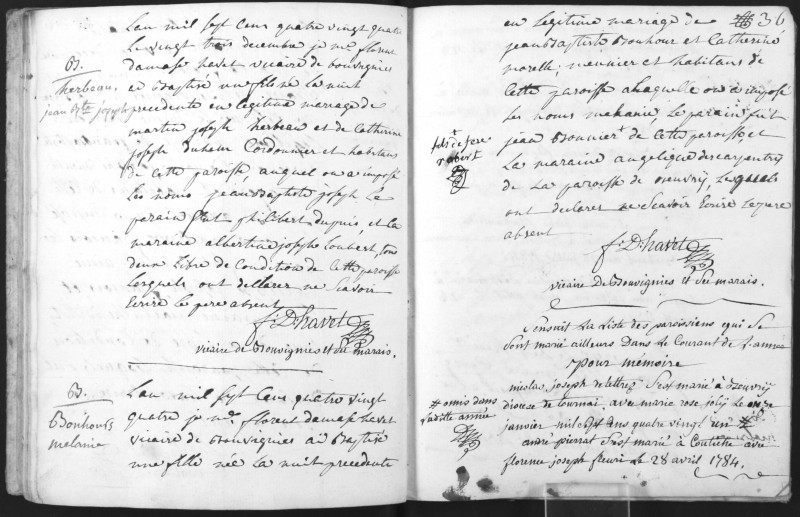 Lan mil sept Cens quatre vingt quatre
Le vingt trois decembre je me. florent
damase havet vicaire de bouvignies
B.
herbeau
jean Bte joseph
ai Baptisé un fils né la nuit
precedente en legitime mariage de
martin joseph herbeau et de Catherine
joseph duhem Cordonnier et habitans
de Cette paroisse, auquel on a imposé
les noms jean Baptiste joseph Le
parain fut philibert dupuis, et la
maraine albertine josephe Loubert, tous
deux Libre de Condition de Cette paroisse
Lesquels ont declarer ne Scavoir
Ecrire Le pere absent
f. D. havet
vicaire de Bouvignies et du marais.
B.
Bonhours
melanie
Lan mil sept Cens quatre vingt
quatre je me. florent damase havet
vicaire de Bouvignies ai Baptisé
une fille née La nuit precedente
36
en Legitime mariage de
jean Baptiste Bonhour et Catherine
morelle, meunier et habitans de
Cette paroisse a laquelle on a imposé
les noms melanie Le parain fut
jean Bonnier de Cette paroisse, et
La maraine angelique descarpentry
de La paroisse de beuvry, Lesquels
ont declarer ne Scavoir Ecrire Le pere
absent
f. D. havet
vicaire de Bouvignies et du marais.
Sensuit La Liste des paroisiens qui Se
Sont marié ailleurs Dans Le Courant de L'année
pour mémoire
nicolas joseph deletrez S'est marié à Beuvry
diocese de tournai avec marie rose joly Le onze
janvier mil sept Cens quatre vingt un
# omis dans
Laditte année
andré pierrat S'est marié à Coutiche avec
florence joseph fleuri Le 28 avril 1784.